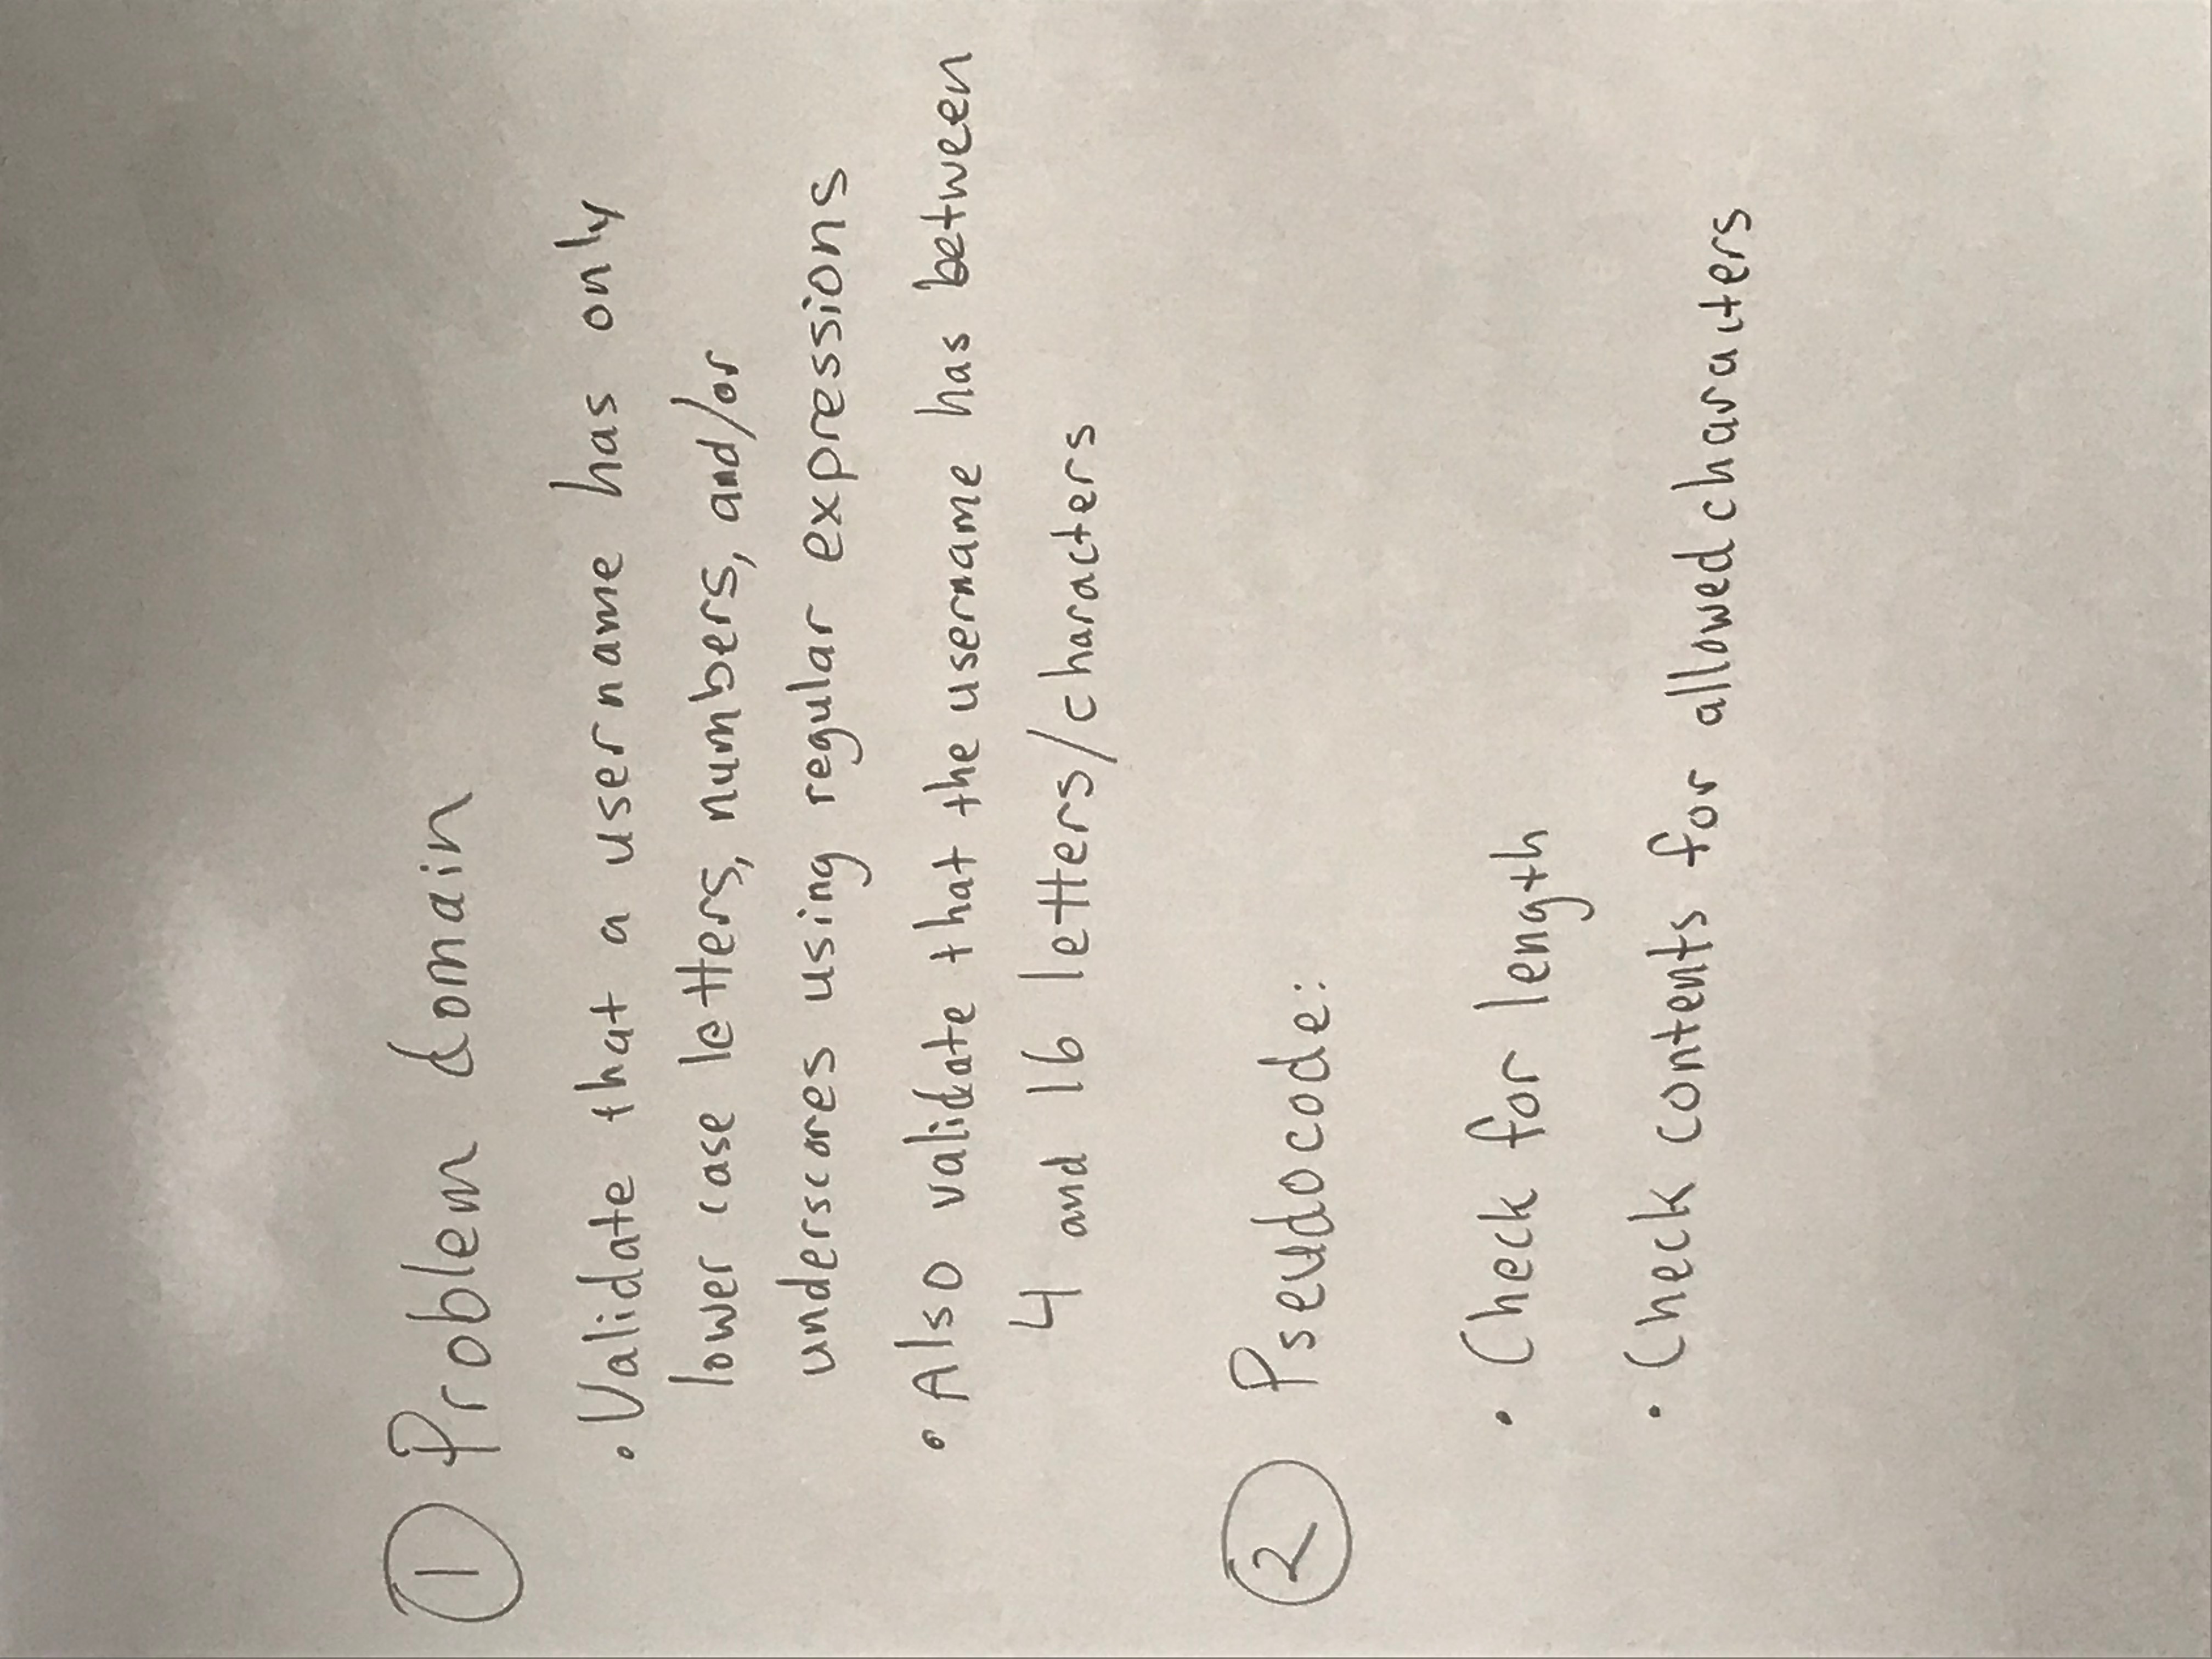 ① Problem domain
• Validate that a username has only
lower case letters, numbers, and/or
underscores using regular expressions
• Also validate that the username has between
4 and 16 letters/characters
② Pseudocode:
• Check for length
• Check contents for allowed characters